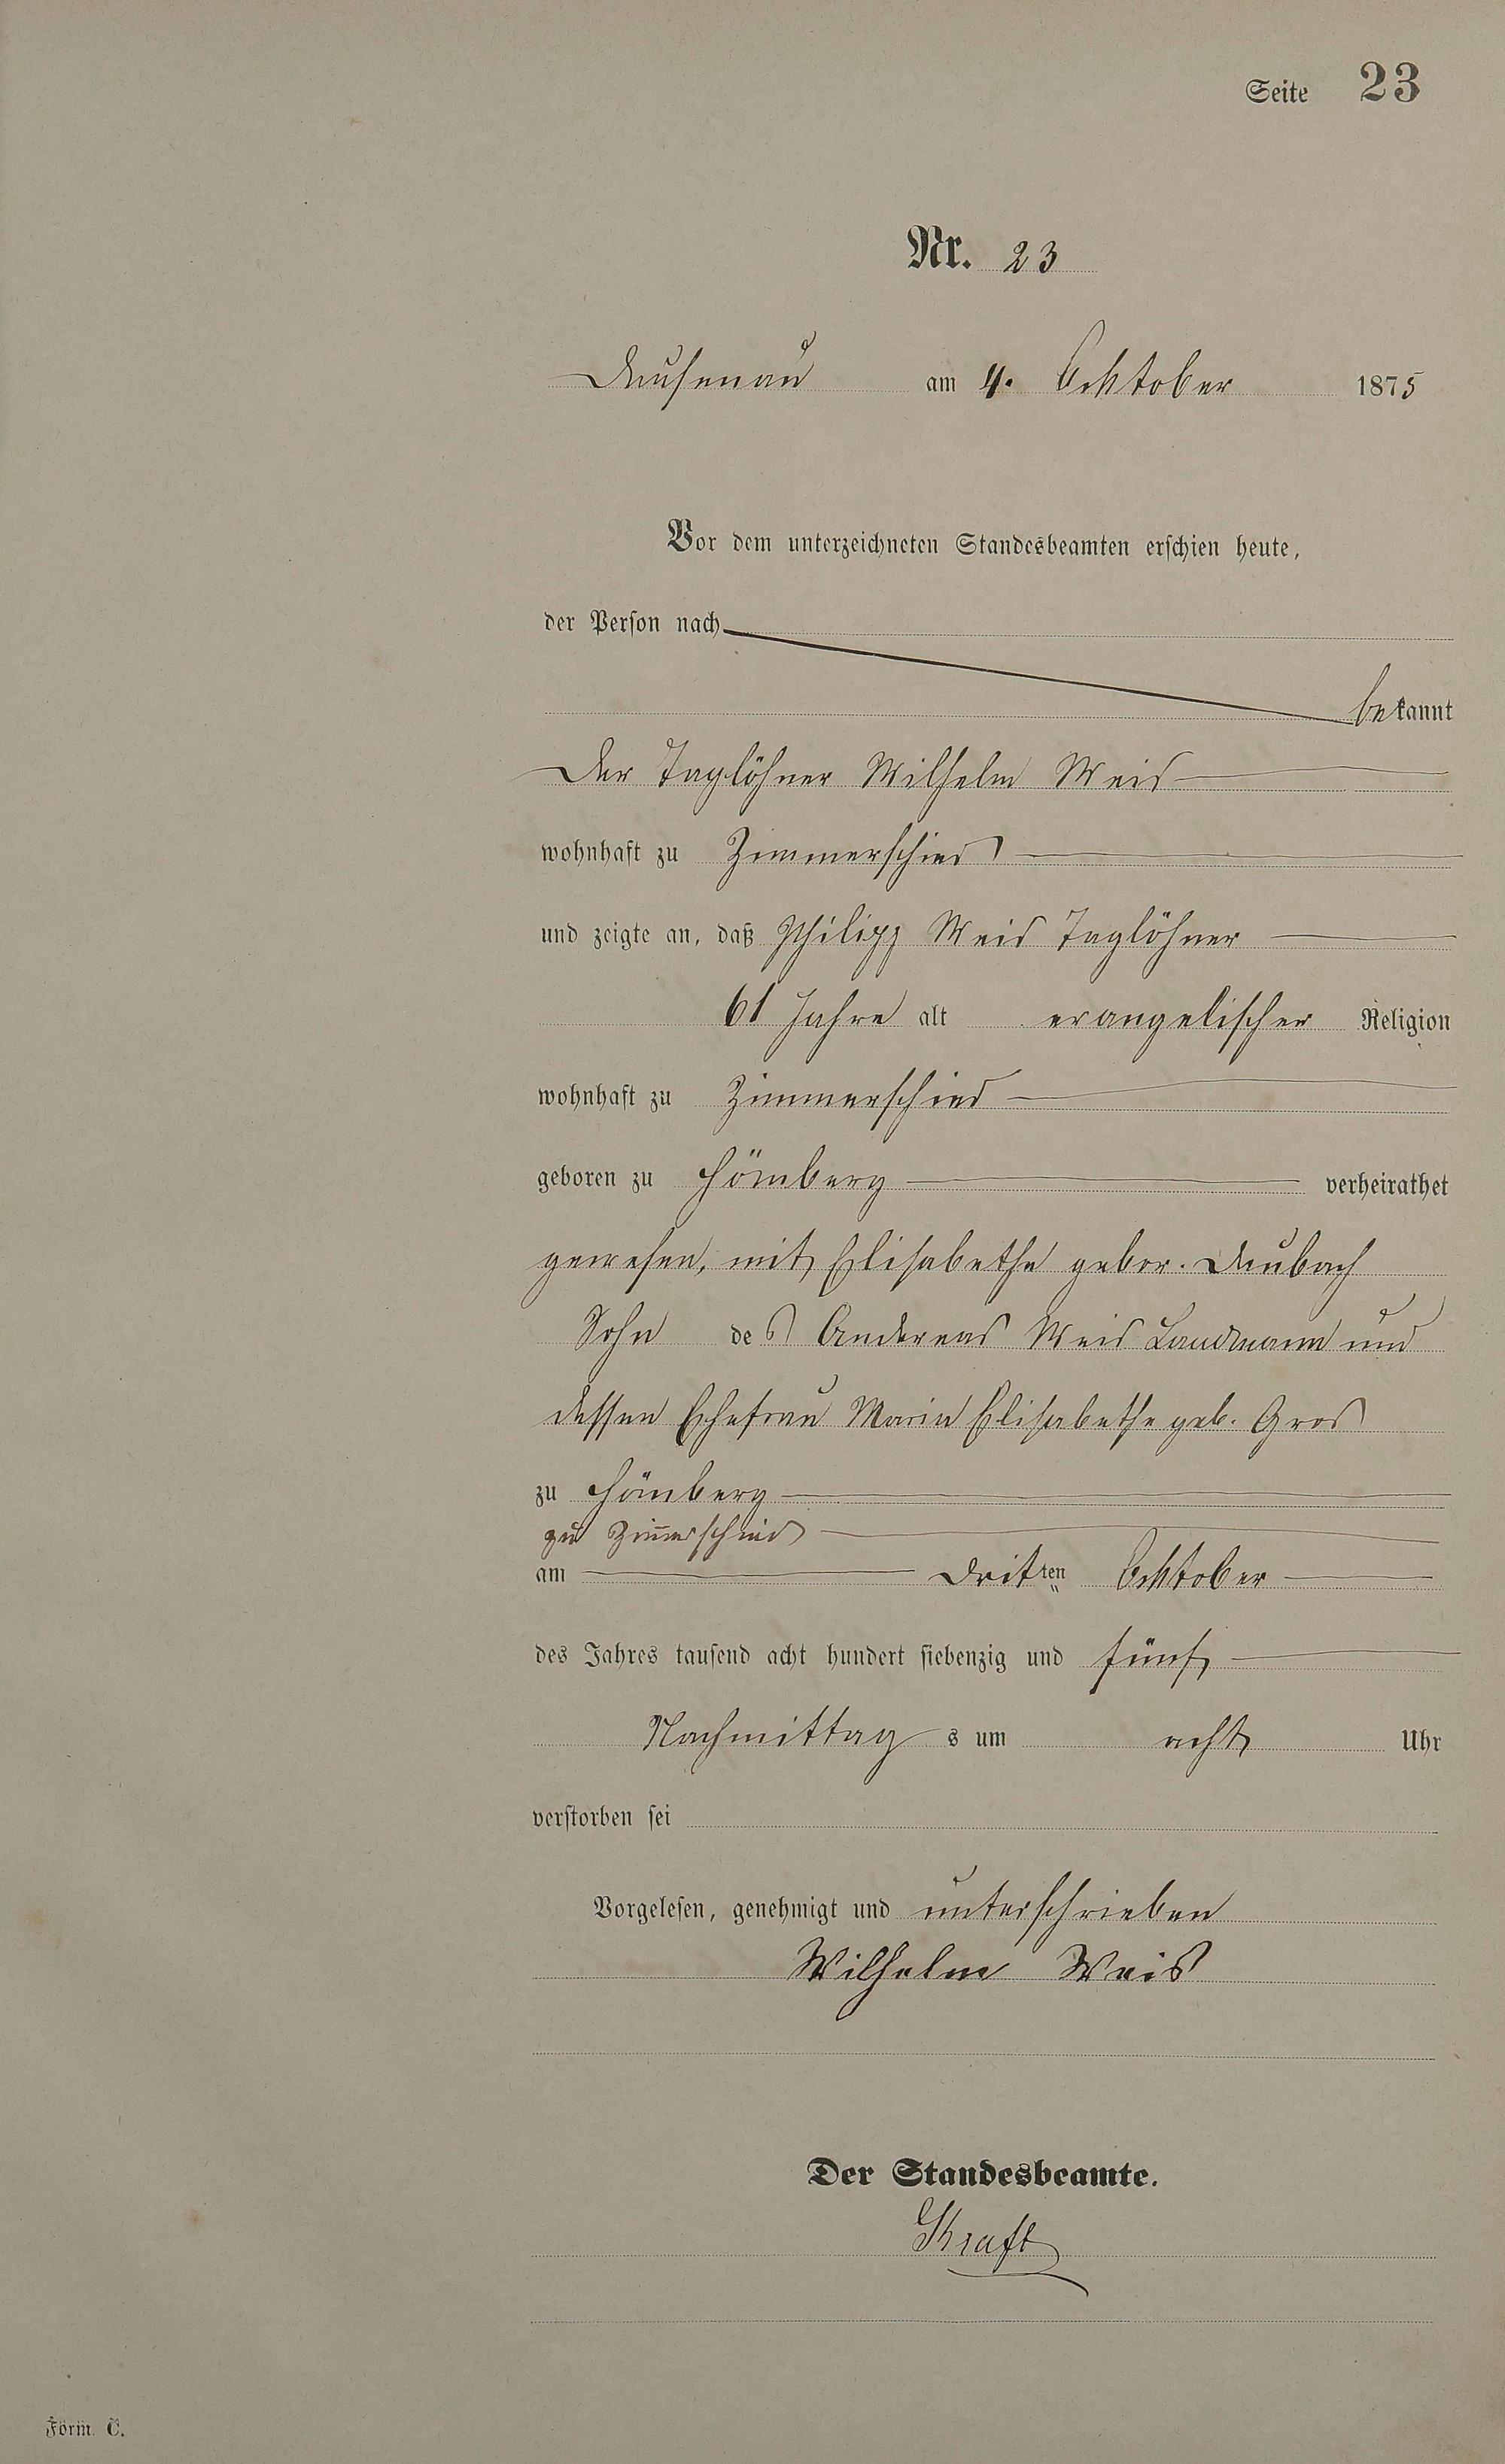 Seite 23
Nr. 23
Dausenau am 4. Ocktober 1875
Vor dem unterzeichneten Standesbeamten erschien heute,
der Person nach
bekannt
Der Taglöhner Wilhelm Weis
wohnhaft zu Zimmerschied
und zeigte an, daß Philipp Weis Taglöhner
61 Jahre alt evangelischer Religion
wohnhaft zu Zimmerschied
geboren zu Hömberg verheirathet
gewesen, mit Elisabethe gebor. Daubach
Sohn des Andereas Weis Landmann und
dessen Ehefrau Maria Elisabethe geb. Gros
zu Hömberg
zu Zim̄erschied
am Dritten Ocktober
des Jahres tausend acht hundert siebenzig und fünf
Nachmittag s um acht Uhr
verstorben sei
Vorgelesen, genehmigt und unterschrieben
Wilhelm Weis
Der Standesbeamte.
Kraft
Form. C.